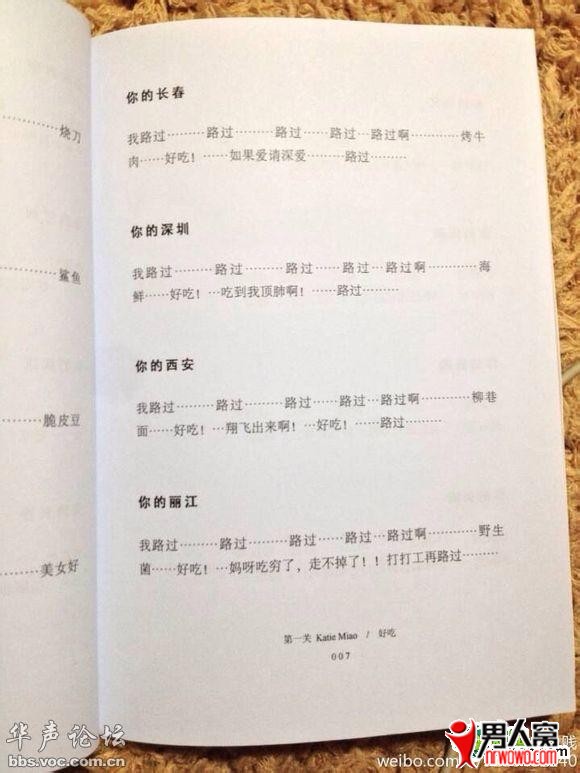 烧刀
鲨鱼
脆皮豆
美女好
你的长春
我路过………路过………路过……路过…路过啊………烤牛
肉……好吃！……如果爱请深爱………路过………
你的深圳
我路过………路过………路过……路过…路过啊………海
鲜……好吃！…吃到我顶肺啊！……路过………
你的西安
我路过………路过………路过……路过…路过啊………柳巷
面……好吃！…翔飞出来啊！…好吃！……路过………
你的丽江
我路过………路过………路过……路过…路过啊………野生
菌……好吃！…妈呀吃穷了，走不掉了！！打打工再路过………
第一关 Katie Miao / 好吃
007
华声论坛
bbs.voc.com.cn
男人窝
nrwowo.com
贱
weibo.com/
40